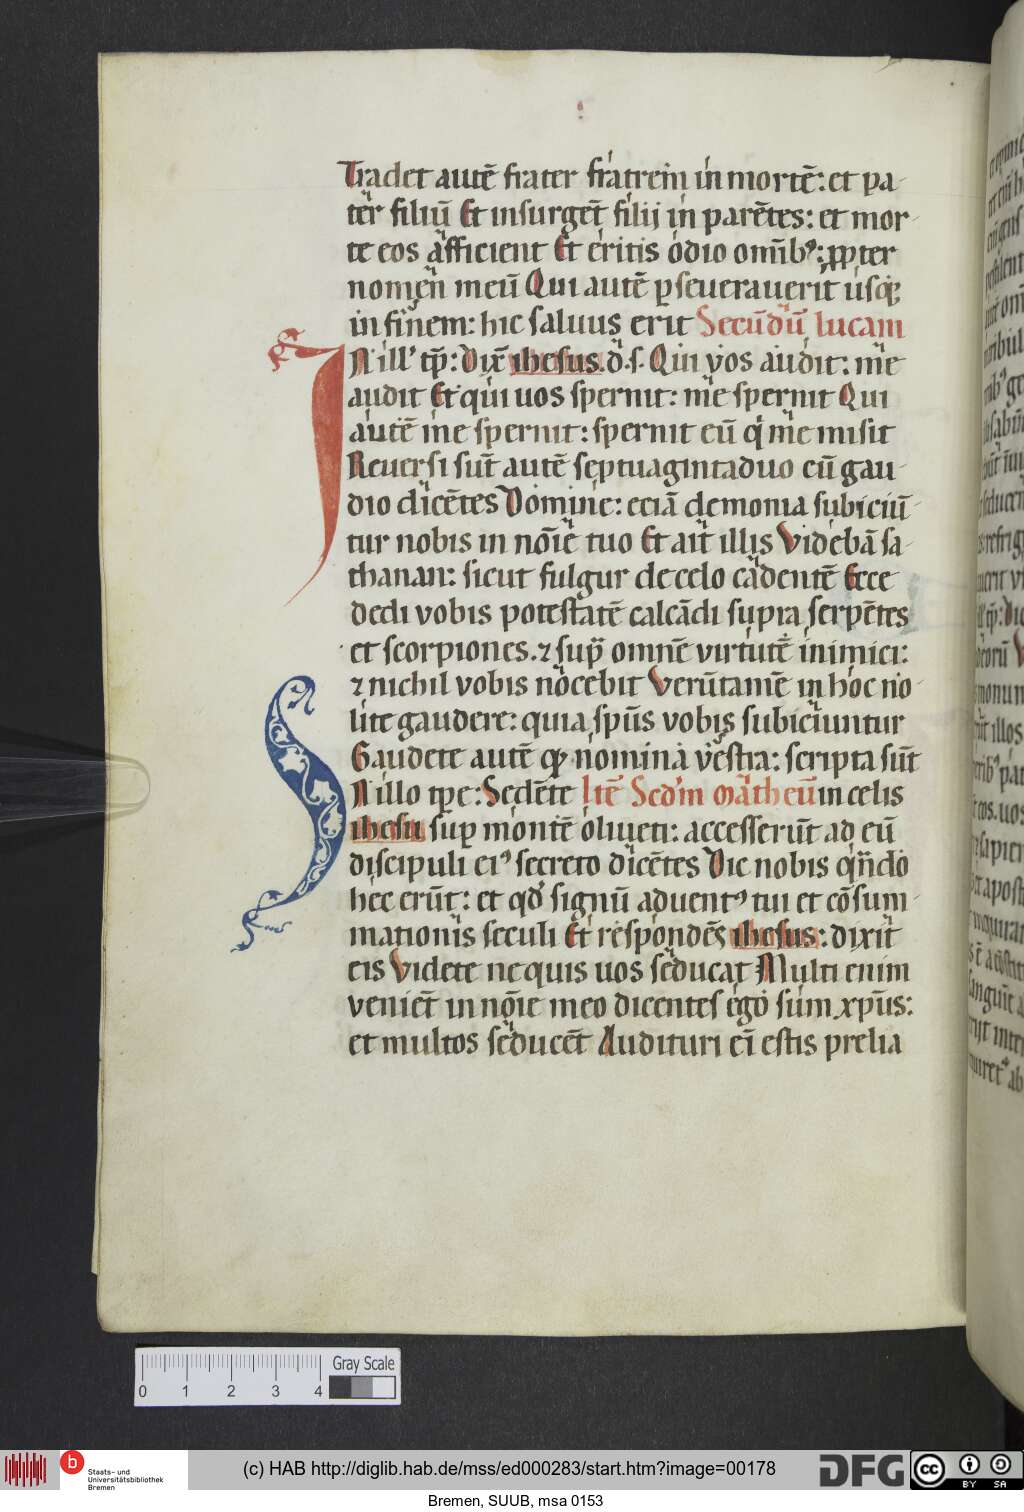 Tradet autē frater fratrem in mortē: et pa-
ter filiū Et insurgēt filij in parētes: et mor-
te eos afficient Et eritis odio omībꝰ: ꝓpter
nomen meū Qui autē ꝑseuerauerit usqꝫ
in finem: hic saluus erit Secūdū lucam
IN illꝰ tp̄: Dix̄ ihesus d̄.s. Qui vos audit: me
audit Et qui uos spernit: me spernit Qui
autē me spernit: spernit eū qi me misit
Reuersi sūt autē septuagintaduo cū gau-
dio dicētes Domine: eciā demonia subiciū-
tur nobis in nōīe tuo Et ait illis Videbā sa-
thanan: sicut fulgur de celo cadentē Ecce
dedi vobis potestatē calcādi supra serpētes
et scorpiones. ⁊ supͣ omnē virtutē inimici:
⁊ nichil vobis nocebit Verūtamē in hoc no-
lite gaudere: quia spūs vobis subiciuntur
Gaudete autē ꝙ nomina vestra: scripta sūt
IN illo tꝑe: Sedēte Itē Scdm matheū in celis
ihesu suꝑ montē oliueti: accesserūt ad eū
discipuli eiꝰ secreto dicētes Dic nobis qn̄do
hec erūt: et qd signū aduentꝰ tui et cōsum-
mationis seculi Et respondēs ihesus: dixit
eis Videte ne quis uos seducat Multi enim
veniēt in nōīe meo dicentes ego sum xp̄us:
et multos seducēt Audituri eī estis prelia
0 1 2 3 4 Gray Scale
b Staats- und Universitätsbibliothek Bremen
(c) HAB http://diglib.hab.de/mss/ed000283/start.htm?image=00178
DFG cc BY SA
Bremen, SUUB, msa 0153